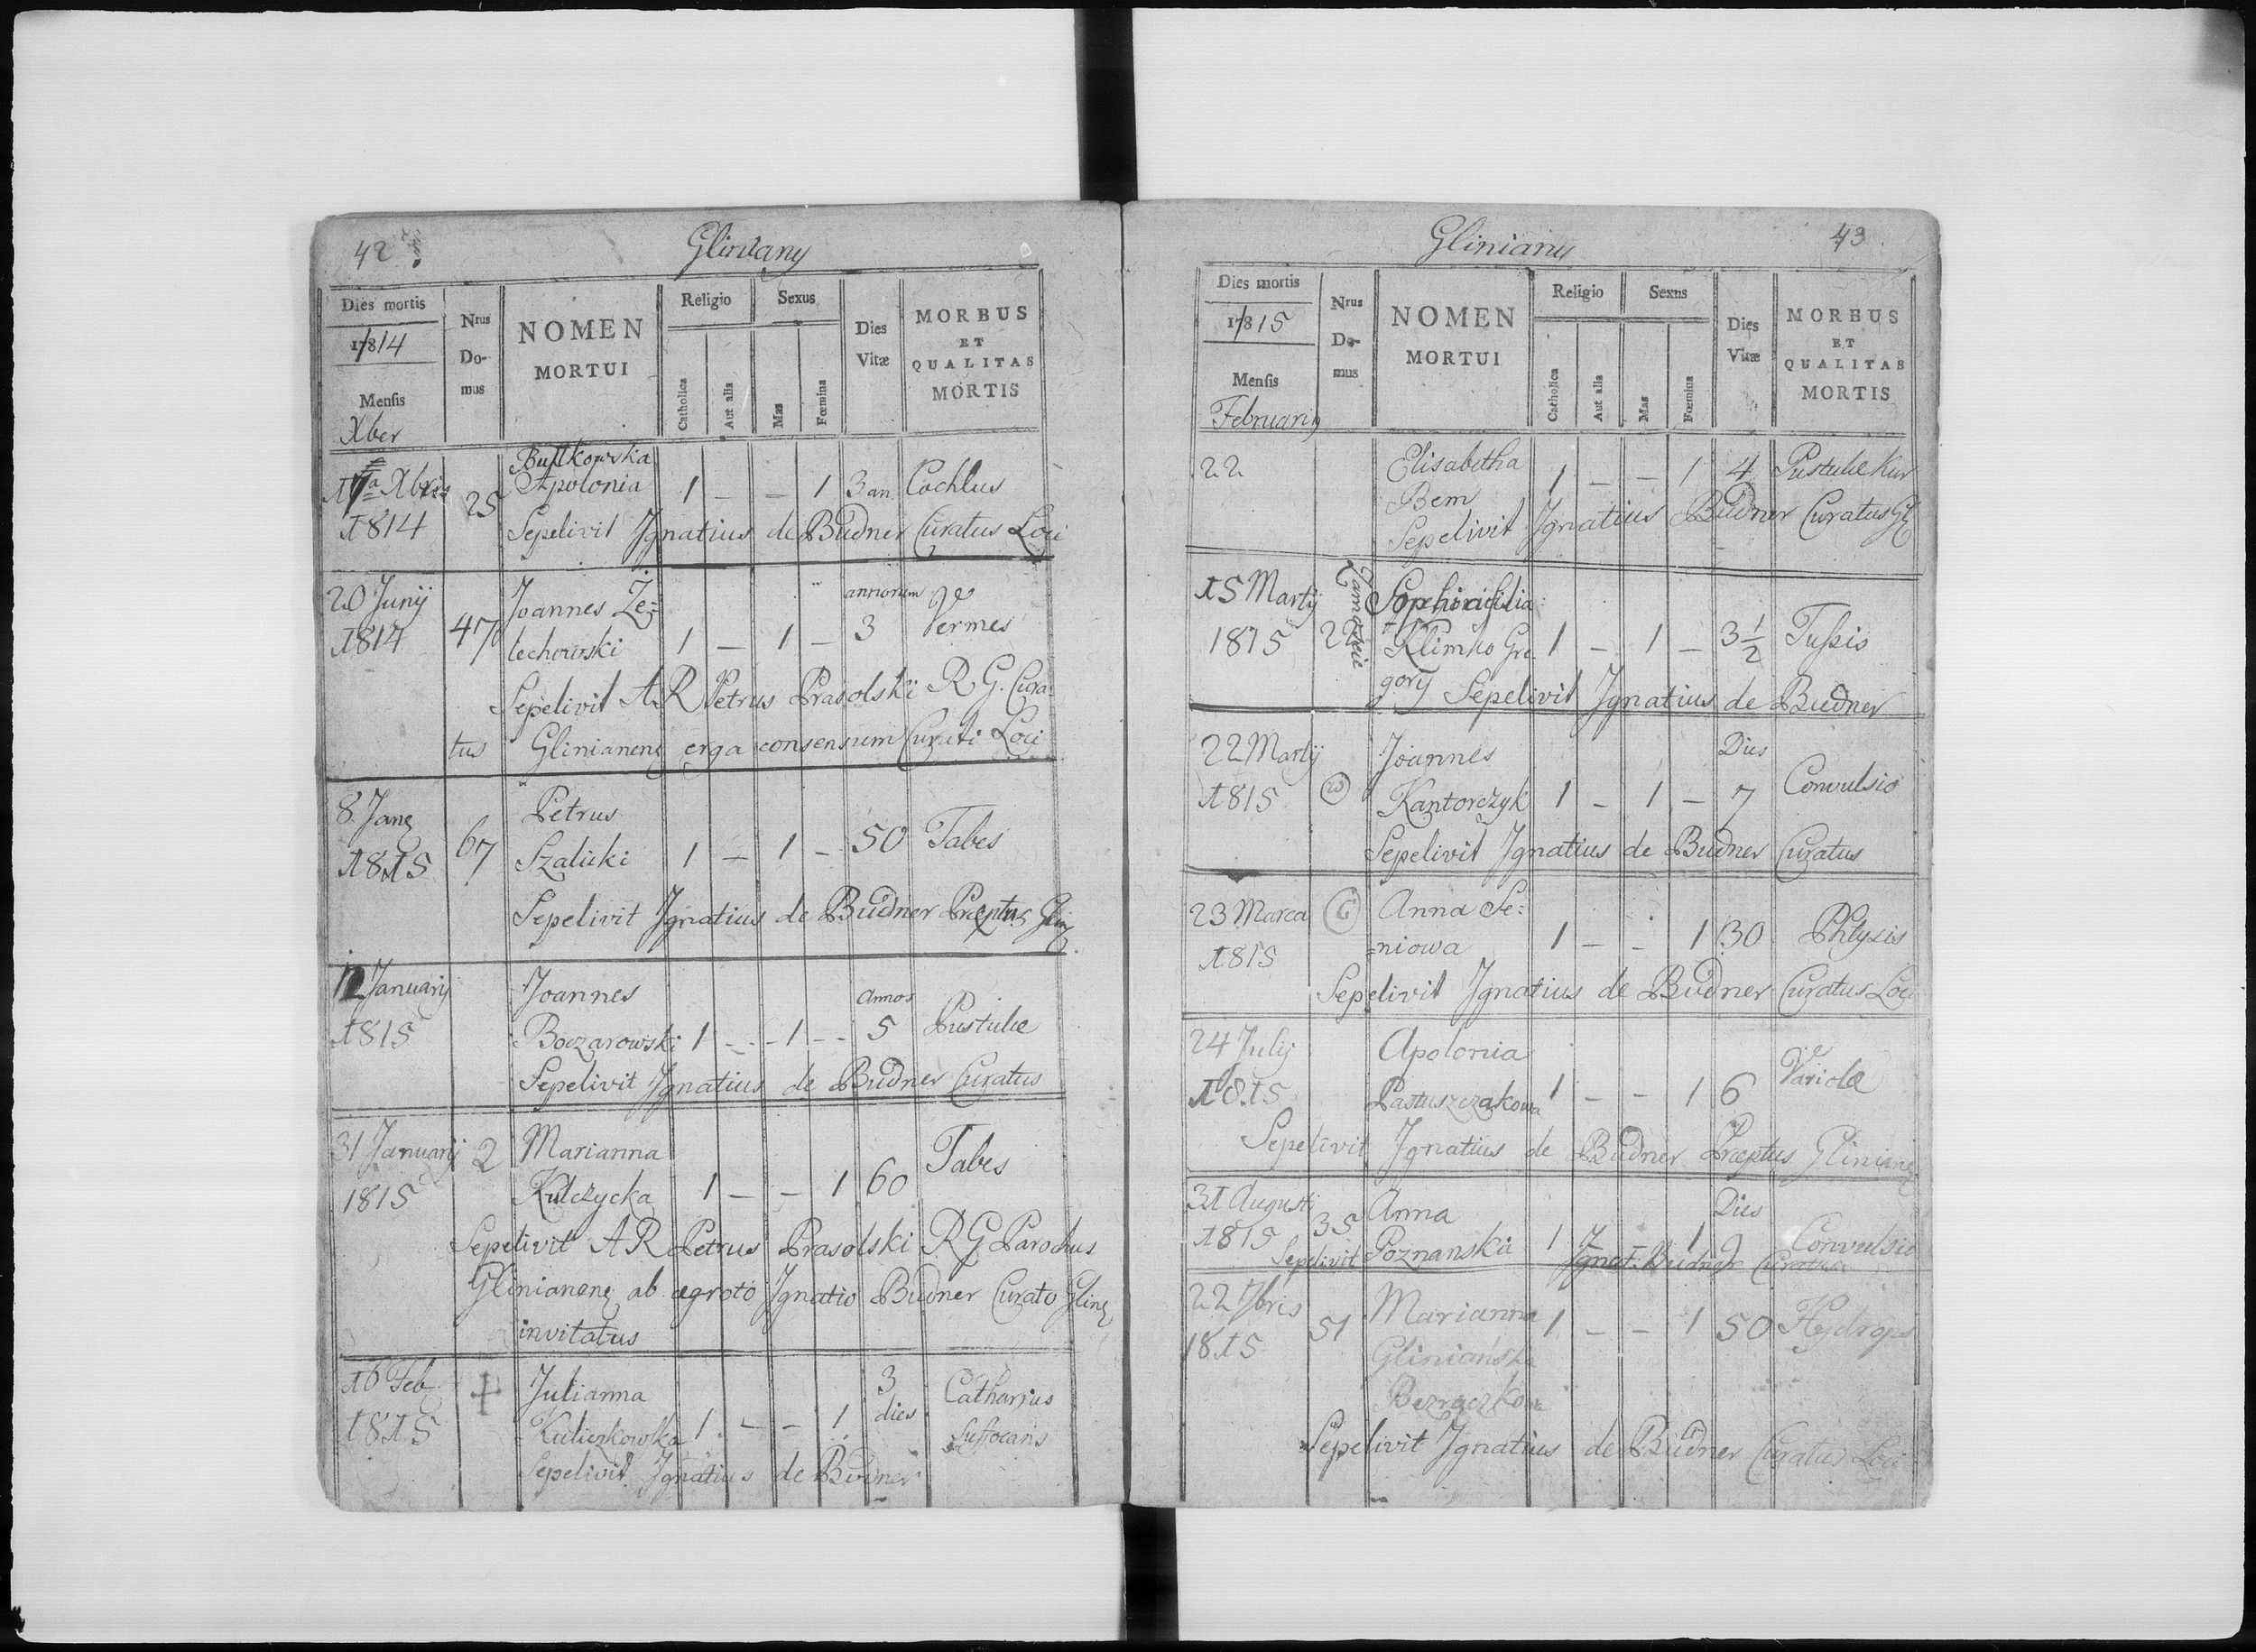 42
Gliniany
Dies mortis
1814
Mensis
Xber
Nrus
Do-
mus
NOMEN
MORTUI
Religio
Catholica
Aut alia
Sexus
Mas
Fœmina
Dies
Vitæ
MORBUS
ET
QUALITAS
MORTIS
Xbris
1814
25
Apolonia 1 – – 1 3 an. Cochlus
Sepelivit Ignatius de Budner Curatus Loci
20 Junij
1814
47
Joannes Że=
lechowski 1 – 1 –
annorum
3
Vermes
Sepelivit A R Petrus Prasolski R. G. Cura
tus Glinianens erga consensum Curati Loci
8 Jan
1815
67
Petrus
Szalicki 1 – 1 – 50 Tabes
Sepelivit Ignatius de Budner
12 January
1815
Joannes
Boczarowski 1 – – 1 – –
annos
5
Pustulæ
Sepelivit Ignatius de Budner Curatus
31 January
1815
2
Marianna
Kulczycka 1 – – 1 60 Tabes
Sepelivit A R Petrus Prasolski R G Parochus
Glinianens ab ægroto Ignatio Budner Curato Glin
invitatus
16 Feb
1815
Julianna
Kuliczkowska 1 – – 1
3
dies
Catharjus
Suffocans
Sepelivit Ignatius de Budner
Gliniany
43
Dies mortis
1815
Mensis
Nrus
Do-
mus
NOMEN
MORTUI
Religio
Catholica
Aut alia
Sexus
Mas
Fœmina
Dies
Vitæ
MORBUS
ET
QUALITAS
MORTIS
22
Elisabetha
Bem 1 – – 1 4 Pustulæ
Sepelivit Ignatius Budner Curatus
15 Martij
1815
22
Klimko Gre 1 – 1 – 3 1/2 Tussis
gory Sepelivit Ignatius de Budner
22 Martij
1815
Joannes
Kantorczyk 1 – 1 –
Dies
7
Convulsio
Sepelivit Ignatius de Budner Curatus
23 Marca
1815
6
Anna Se=
niowa 1 – – 1 30 Phtysis
Sepelivit Ignatius de Budner Curatus Loci
24 Julij
1815
Apolonia
Pastuszczakowa 1 – – 1 6 Variolæ
Sepelivit Ignatius de Budner Præptus Glinianens
31 Augusti
1815
35
Anna
Poznanska 1 – – 1
Dies
9
Convulsio
Sepelivit Ignat: Budner Curatus
22 7bris
1815
51
Marianna 1 – – 1 50 Hydrops
Glinianska
Sepelivit Ignatius de Budner Curatus Loci